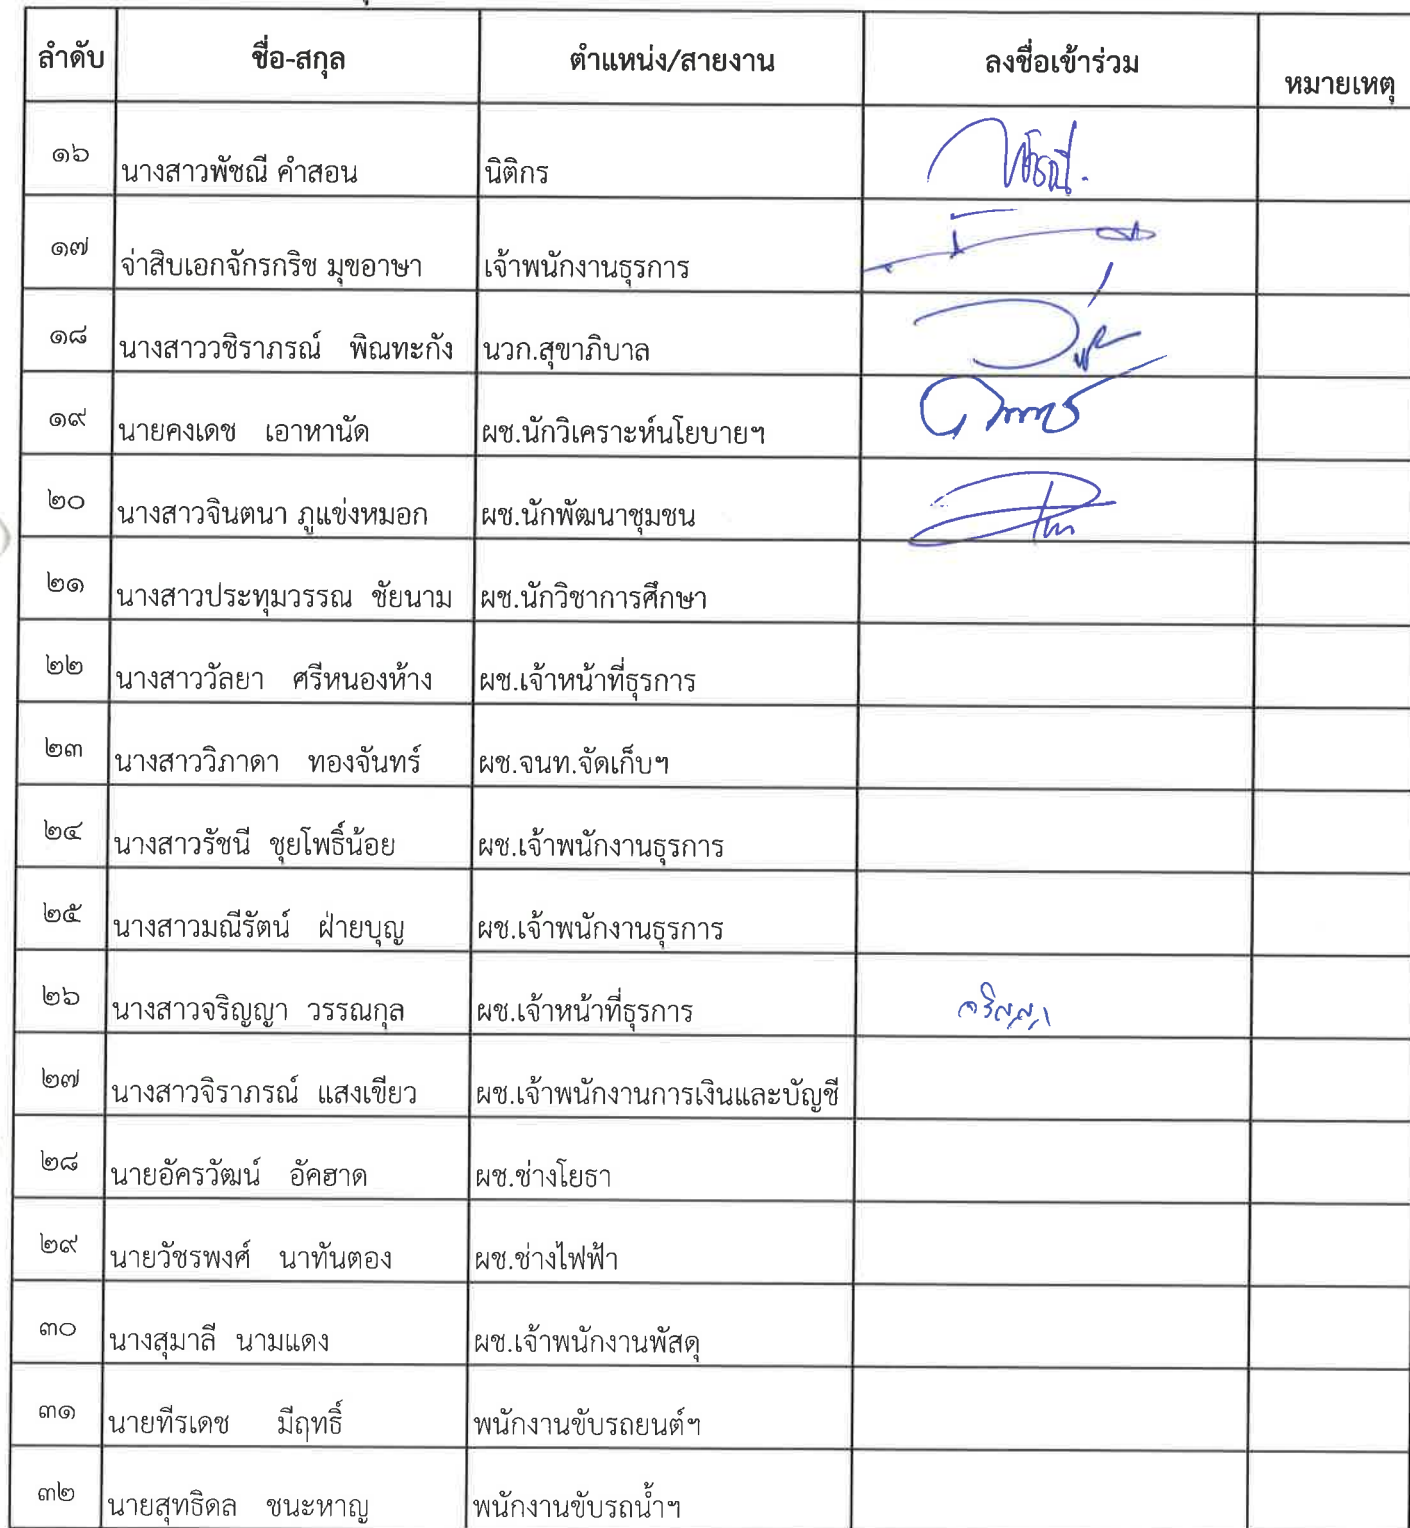 ลำดับ ชื่อ-สกุล ตำแหน่ง/สายงาน ลงชื่อเข้าร่วม หมายเหตุ
๑๖ นางสาวพัชณี คำสอน นิติกร
๑๗ จ่าสิบเอกจักรกริช มุขอาษา เจ้าพนักงานธุรการ
๑๘ นางสาววชิราภรณ์ พิณทะกัง นวก.สุขาภิบาล
๑๙ นายคงเดช เอาหานัด ผช.นักวิเคราะห์นโยบายฯ
๒๐ นางสาวจินตนา ภูแข่งหมอก ผช.นักพัฒนาชุมชน
๒๑ นางสาวประทุมวรรณ ชัยนาม ผช.นักวิชาการศึกษา
๒๒ นางสาววัลยา ศรีหนองห้าง ผช.เจ้าหน้าที่ธุรการ
๒๓ นางสาววิภาดา ทองจันทร์ ผช.จนท.จัดเก็บฯ
๒๔ นางสาวรัชนี ชุยโพธิ์น้อย ผช.เจ้าพนักงานธุรการ
๒๕ นางสาวมณีรัตน์ ฝ่ายบุญ ผช.เจ้าพนักงานธุรการ
๒๖ นางสาวจริญญา วรรณกุล ผช.เจ้าหน้าที่ธุรการ จริญญา
๒๗ นางสาวจิราภรณ์ แสงเขียว ผช.เจ้าพนักงานการเงินและบัญชี
๒๘ นายอัครวัฒน์ อัคฮาด ผช.ช่างโยธา
๒๙ นายวัชรพงศ์ นาทันตอง ผช.ช่างไฟฟ้า
๓๐ นางสุมาลี นามแดง ผช.เจ้าพนักงานพัสดุ
๓๑ นายทีรเดช มีฤทธิ์ พนักงานขับรถยนต์ฯ
๓๒ นายสุทธิดล ชนะหาญ พนักงานขับรถน้ำฯ